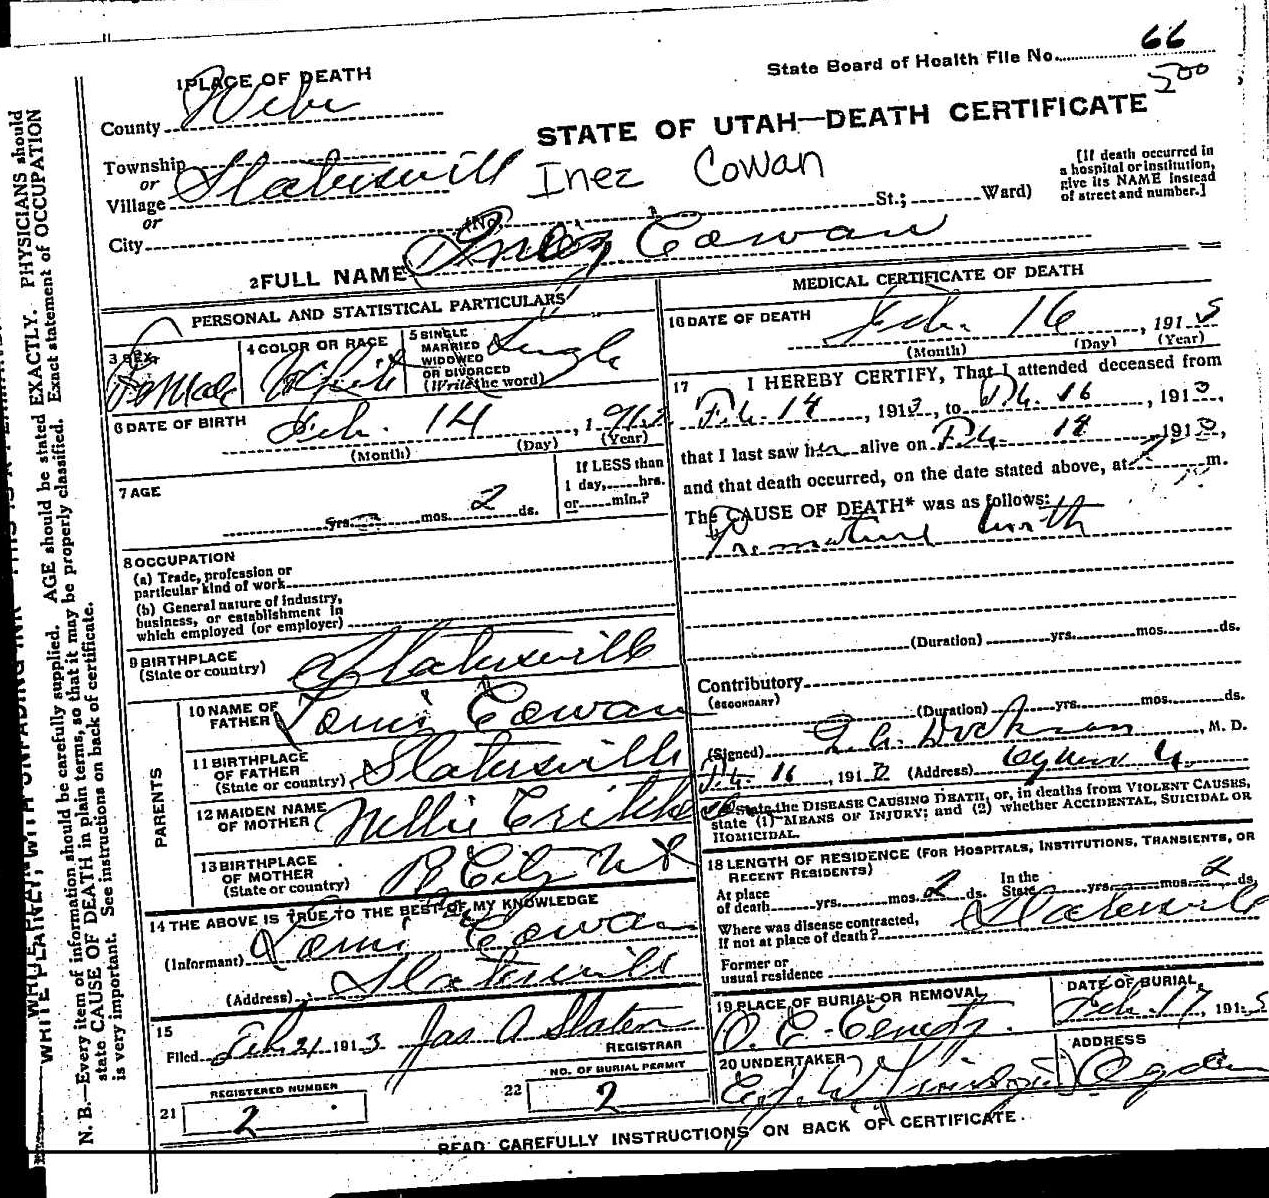 State Board of Health File No. 66
500
1 PLACE OF DEATH
STATE OF UTAH—DEATH CERTIFICATE
County Weber
Township
or
Village Slatersvill
or
City
Inez Cowan
(No. St.; Ward)
[If death occurred in
a hospital or institution,
give its NAME instead
of street and number.]
2 FULL NAME Inez Cowan
PERSONAL AND STATISTICAL PARTICULARS
3 SEX
Female
4 COLOR OR RACE
White
5 SINGLE
MARRIED
WIDOWED
OR DIVORCED
(Write the word)
Single
6 DATE OF BIRTH
Feb. 14, 1913
(Month) (Day) (Year)
7 AGE
yrs. mos. 2 ds.
If LESS than
1 day, hrs.
or min.?
8 OCCUPATION
(a) Trade, profession or
particular kind of work
(b) General nature of industry,
business, or establishment in
which employed (or employer)
9 BIRTHPLACE
(State or country)
Slatersville
PARENTS
10 NAME OF
FATHER
Cowan
11 BIRTHPLACE
OF FATHER
(State or country)
Slatersville
12 MAIDEN NAME
OF MOTHER
Nellie
13 BIRTHPLACE
OF MOTHER
(State or country)
14 THE ABOVE IS TRUE TO THE BEST OF MY KNOWLEDGE
(Informant) Cowan
(Address) Slatersvill
15
Filed Feb 21 1913 Jas A Slater
REGISTRAR
21 REGISTERED NUMBER
2
22 NO. OF BURIAL PERMIT
2
MEDICAL CERTIFICATE OF DEATH
16 DATE OF DEATH
Feb. 16, 1913
(Month) (Day) (Year)
17 I HEREBY CERTIFY, That I attended deceased from
Feb. 14, 1913, to Feb. 16, 1913,
that I last saw her alive on Feb. 14 1913,
and that death occurred, on the date stated above, at m.
The CAUSE OF DEATH* was as follows:
Premature birth
(Duration) yrs. mos. ds.
Contributory
(SECONDARY)
(Duration) yrs. mos. ds.
(Signed) , M. D.
Feb. 16, 1913 (Address)
*State the DISEASE CAUSING DEATH, or, in deaths from VIOLENT CAUSES,
state (1) MEANS OF INJURY; and (2) whether ACCIDENTAL, SUICIDAL OR
HOMICIDAL.
18 LENGTH OF RESIDENCE (FOR HOSPITALS, INSTITUTIONS, TRANSIENTS, OR
RECENT RESIDENTS)
At place
of death yrs. mos. 2 ds.
In the
State yrs. mos. 2 ds.
Where was disease contracted,
if not at place of death? Slatersvill
Former or
usual residence
19 PLACE OF BURIAL OR REMOVAL
DATE OF BURIAL
Feb. 17, 1913
20 UNDERTAKER
ADDRESS
Ogden
READ CAREFULLY INSTRUCTIONS ON BACK OF CERTIFICATE.
WRITE PLAINLY, WITH UNFADING INK
N. B.—Every item of information should be carefully supplied. AGE should be stated EXACTLY. PHYSICIANS should
state CAUSE OF DEATH in plain terms, so that it may be properly classified. Exact statement of OCCUPATION
is very important. See instructions on back of certificate.